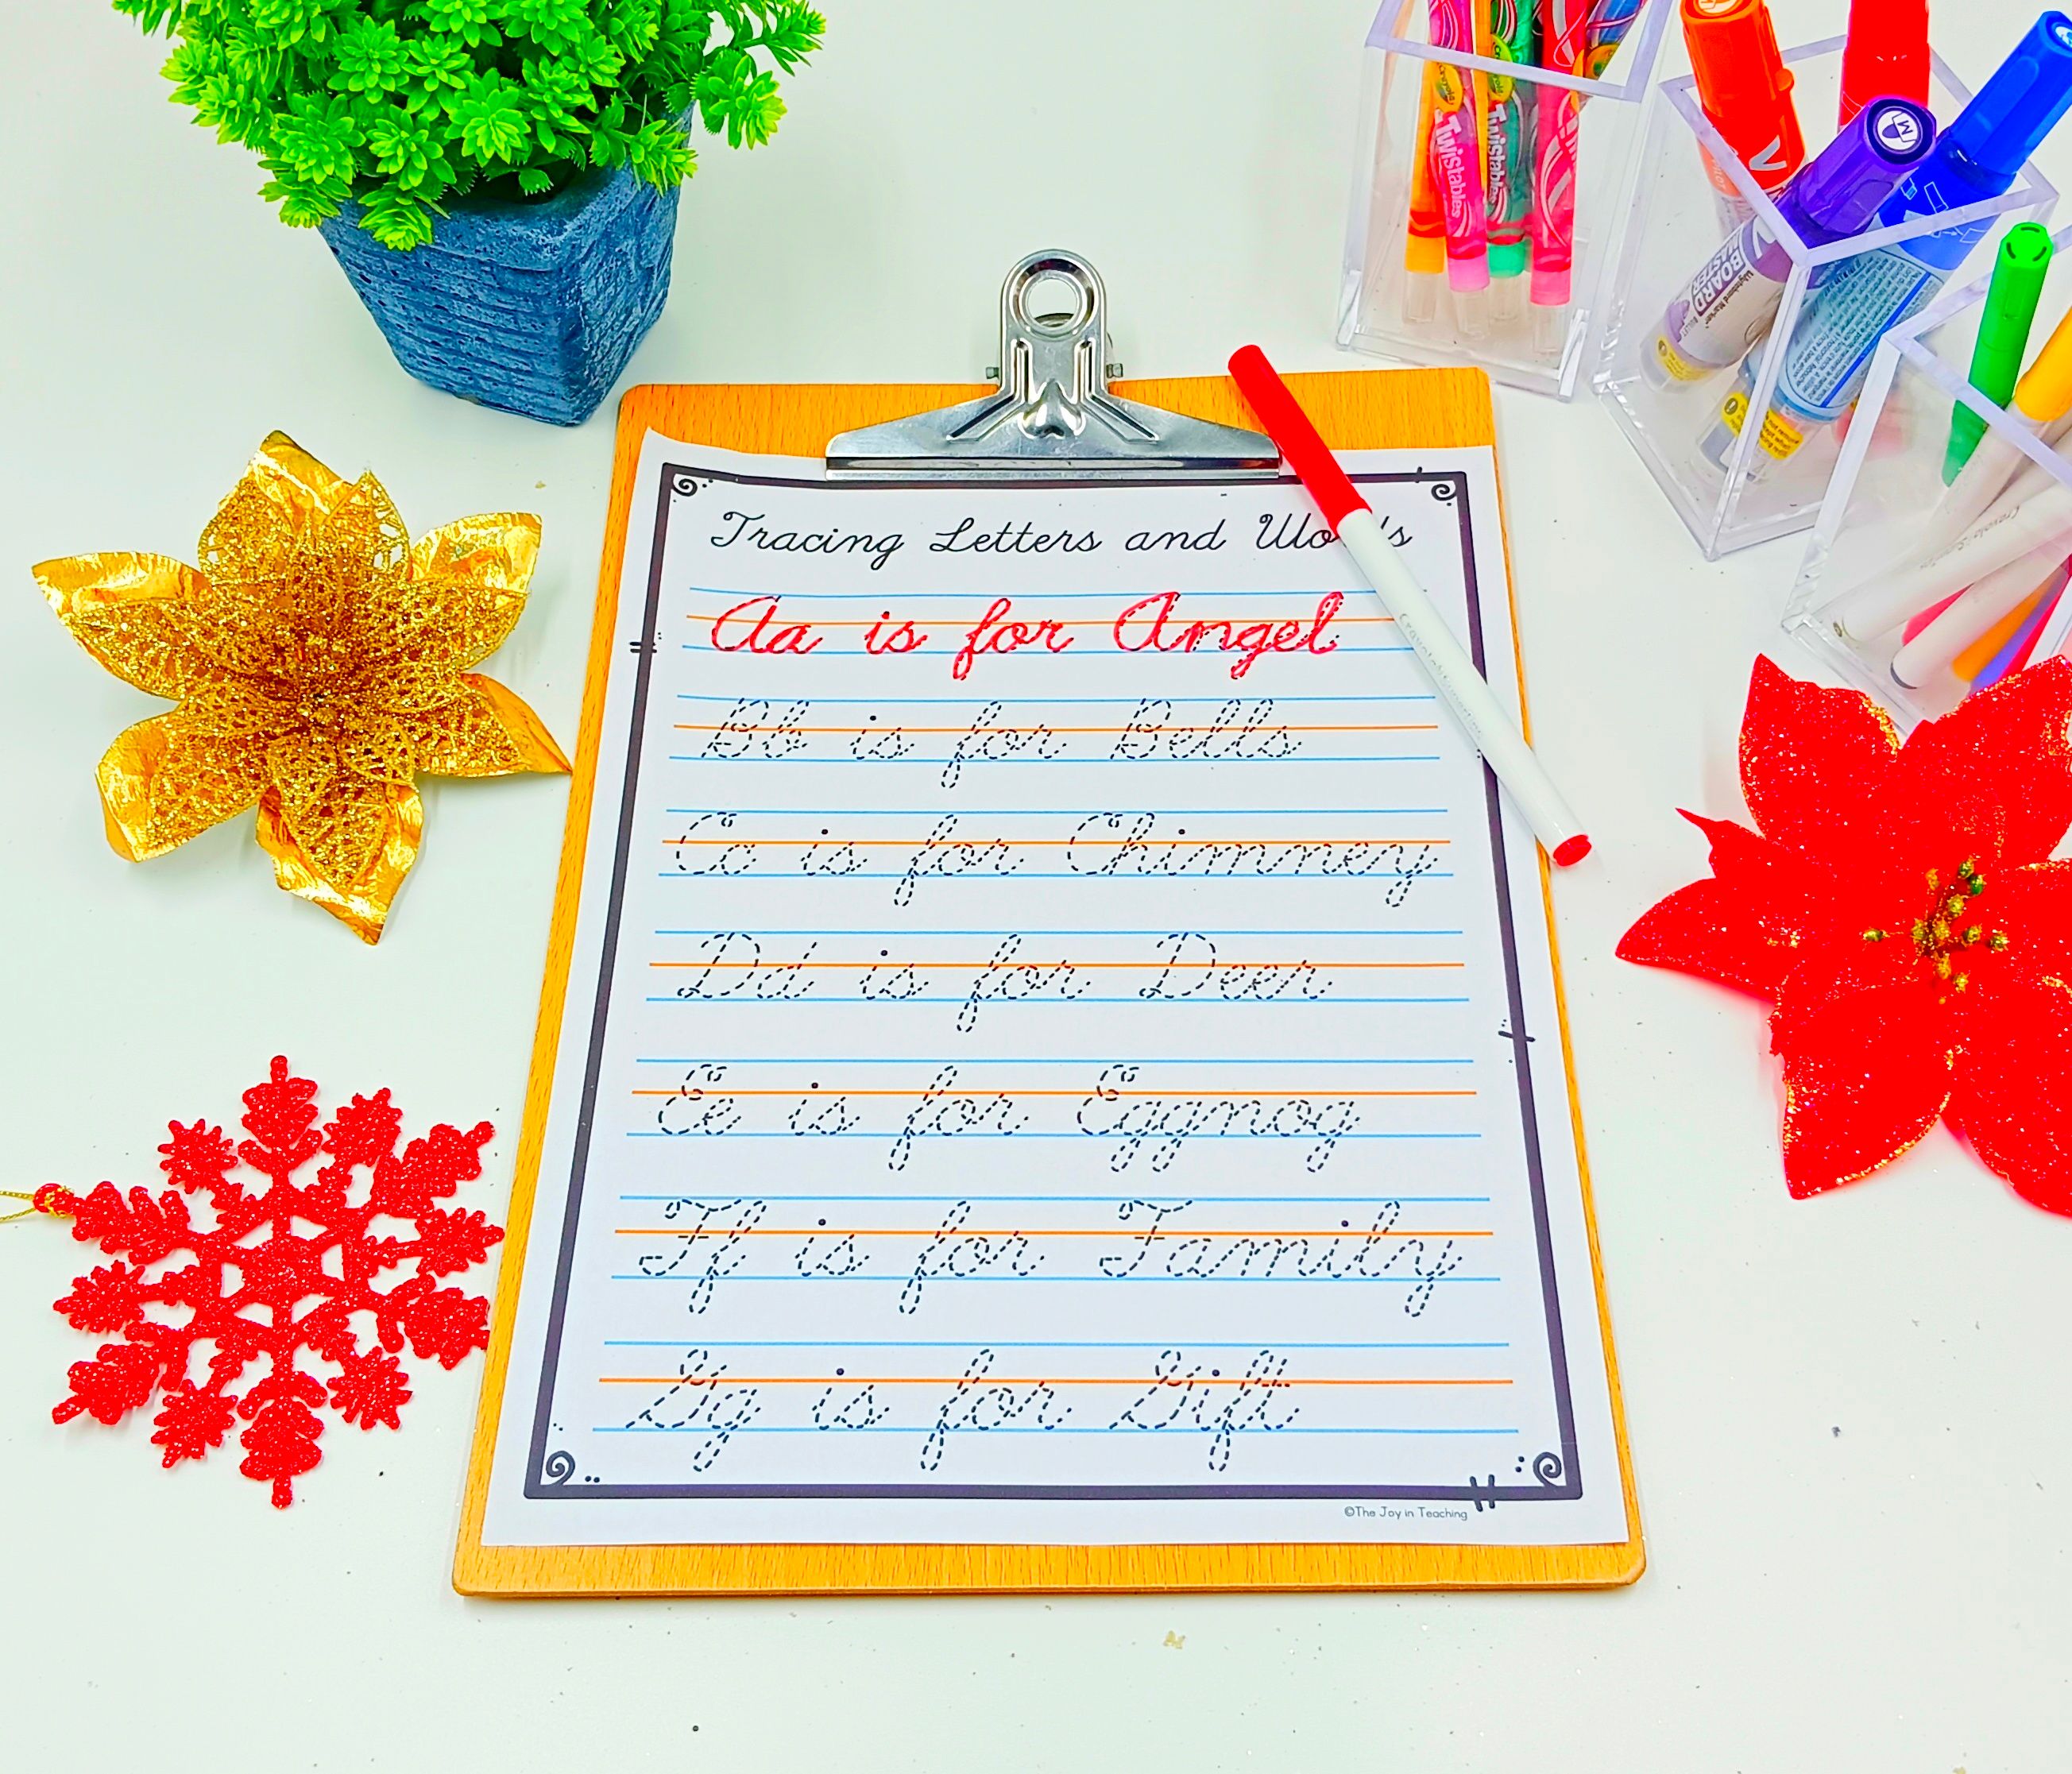 Twistables
Twistables
BOARD
MASTER
Tracing Letters and Wo s
Aa is for Angel
Bb is for Bells
Cc is for Chimney
Dd is for Deer
Ee is for Eggnog
Ff is for Family
Gg is for Gift
©The Joy in Teaching